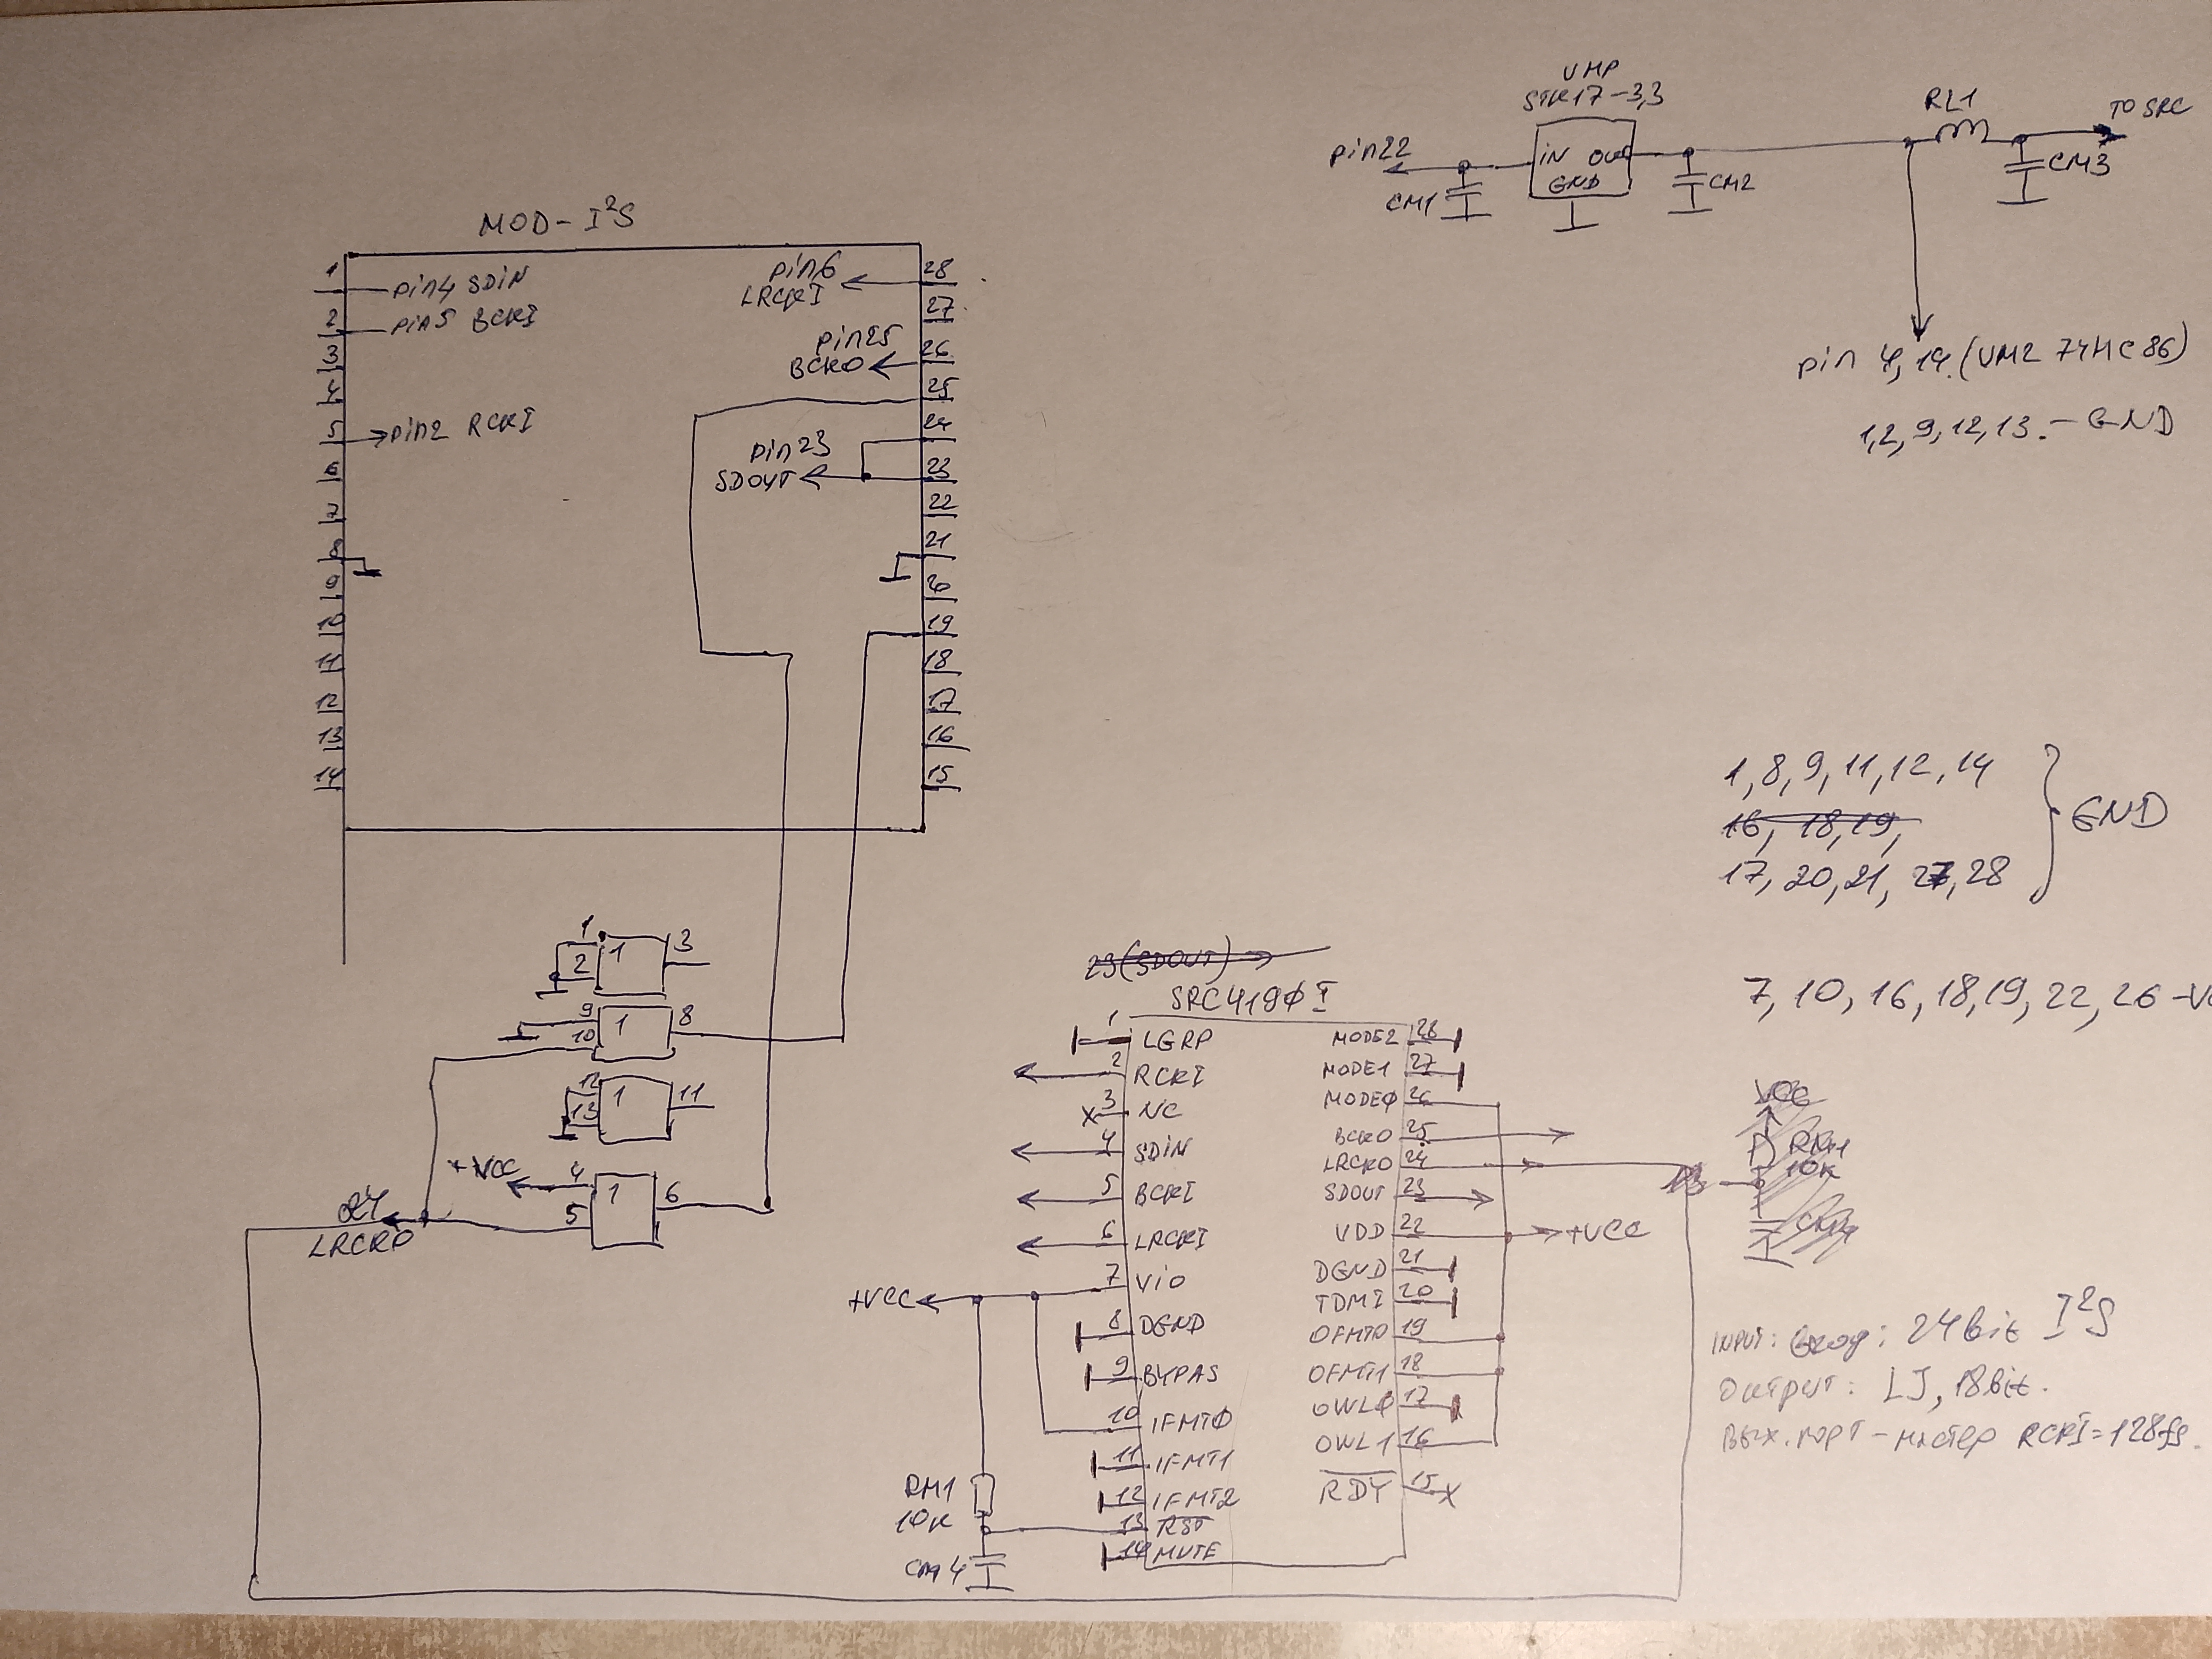 VMP
STK17-3,3
RL1
TO SRC
pin22
IN OUT
GND
CM1
CM2
CM3
pin 4, 14. (VM2 74HC86)
1,2,9,12,13. - GND
MOD-I²S
1
pin4 SDIN
2
pin5 BCKI
3
4
5
pin2 RCKI
6
7
8
9
10
11
12
13
14
pin6
LRCKI
28
27
pin25
BCKO
26
25
24
pin23
SDOUT
23
22
21
20
19
18
17
16
15
1, 8, 9, 11, 12, 14
16, 18, 19,
17, 20, 21, 27, 28
GND
7, 10, 16, 18, 19, 22, 26 -
1
2
1
3
9
10
1
8
12
13
1
11
+VCC
4
5
1
6
24
LRCKO
23(SDOUT)
SRC4190 I
1 LGRP
2 RCKI
x 3 NC
4 SDIN
5 BCKI
6 LRCKI
+VCC
7 VIO
8 DGND
9 BYPAS
10 IFMT0
11 IFMT1
12 IFMT2
13 RST
14 MUTE
RM1
10K
CM4
MODE2 28
MODE1 27
MODE0 26
BCKO 25
LRCKO 24
SDOUT 23
VDD 22
+VCC
DGND 21
TDMI 20
OFMT0 19
OFMT1 18
OWL0 17
OWL1 16
RDY 15 x
VCC
RM1
10K
INPUT: Вход: 24bit I²S
Output: LJ, 18bit.
Вых. порт - мастер RCKI=128fs.